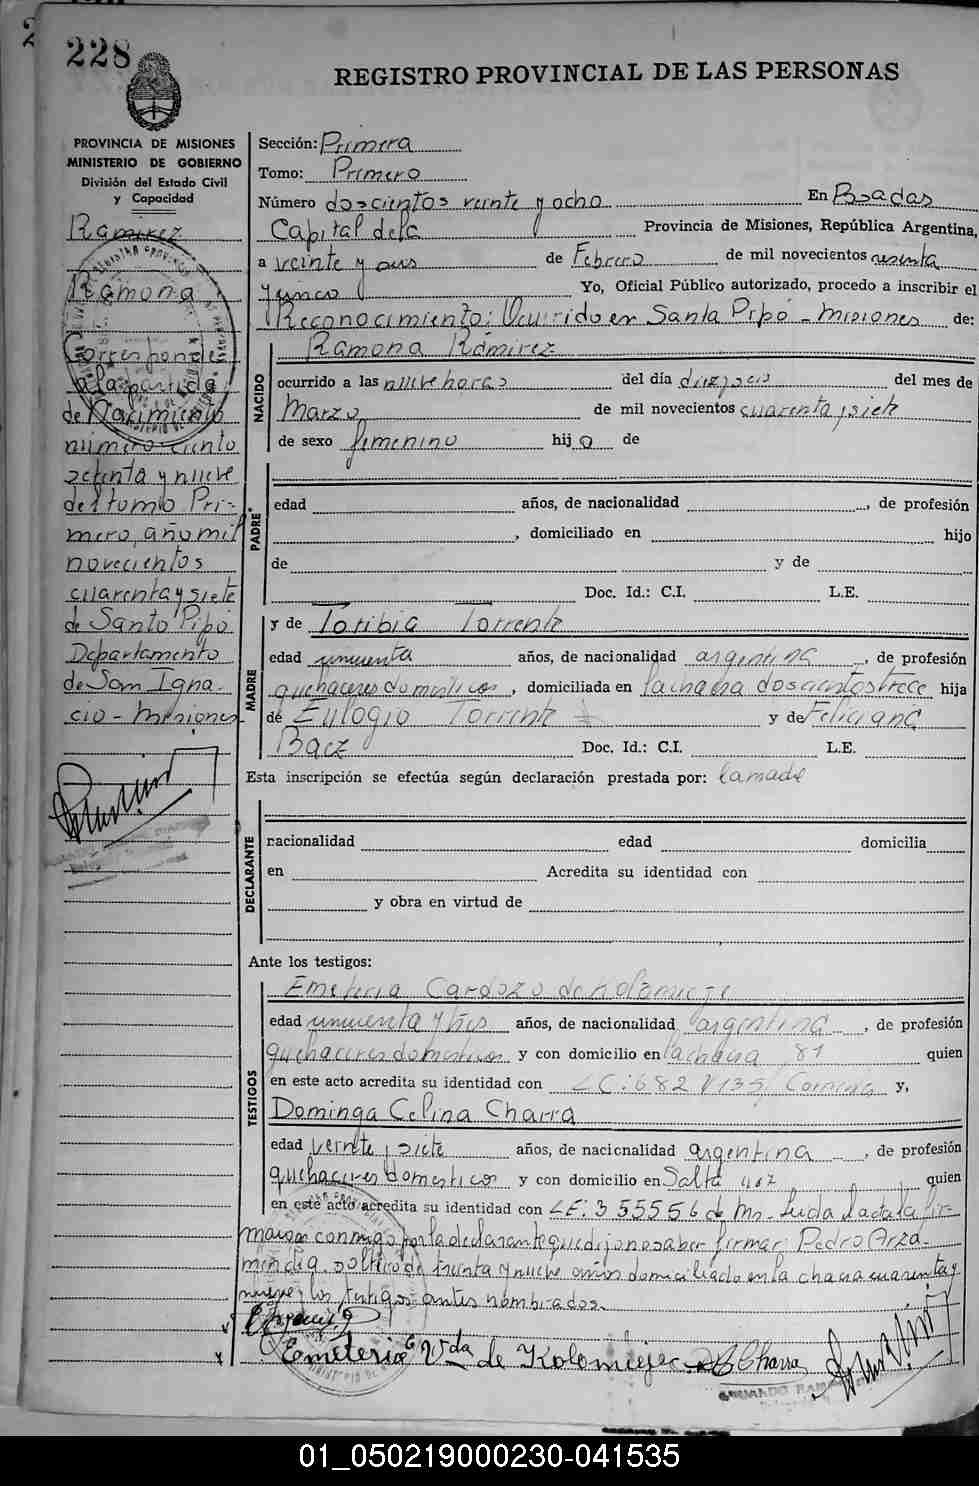 228
REGISTRO PROVINCIAL DE LAS PERSONAS
PROVINCIA DE MISIONES
MINISTERIO DE GOBIERNO
División del Estado Civil
y Capacidad
Ramirez
Ramona
Corresponde
a la partida
de Nacimiento
número ciento
setenta y nueve
del tomo Pri-
mero, año mil
novecientos
cuarenta y siete
de Santo Pipó
Departamento
de San Igna-
cio - Misiones
Sección: Primera
Tomo: Primero
Número doscientos veinte y ocho En Posadas
Capital de la Provincia de Misiones, República Argentina,
a veinte y seis de Febrero de mil novecientos sesenta
y cinco Yo, Oficial Público autorizado, procedo a inscribir el
Reconocimiento: Ocurrido en Santa Pipó - Misiones de:
Ramona Ramirez
NACIDO
ocurrido a las nueve horas del día diez y seis del mes de
Marzo de mil novecientos cuarenta y siete
de sexo femenino hija de
PADRE
edad años, de nacionalidad , de profesión
, domiciliado en hijo
de y de
Doc. Id.: C.I. L.E.
MADRE
y de Toribia Torrente
edad cincuenta años, de nacionalidad argentina , de profesión
quehaceres domesticos, domiciliada en la chacra doscientos trece hija
de Eulogio Torrente y de Feliciana
Baez Doc. Id.: C.I. L.E.
Esta inscripción se efectúa según declaración prestada por: la madre
DECLARANTE
nacionalidad edad domicilia
en Acredita su identidad con
y obra en virtud de
Ante los testigos:
TESTIGOS
Emeteria Cardozo de Kolomieje
edad cincuenta y tres años, de nacionalidad argentina , de profesión
quehaceres domesticos y con domicilio en la chacra 81 quien
en este acto acredita su identidad con LC: 682 y,
Dominga Celina Charra
edad veinte y siete años, de nacionalidad argentina , de profesión
quehaceres domesticos y con domicilio en Salta quien
en este acto acredita su identidad con LE. 3 55556 de Ms. Leida el acta la fir-
maron conmigo por la declarante que dijo no saber firmar Pedro Arza-
mendia, soltero de treinta y nueve años domiciliado en la chacra cuarenta y
nueve y los testigos antes nombrados.
Emeteria C Vda de Kolomiejec D C Charra
01_050219000230-041535